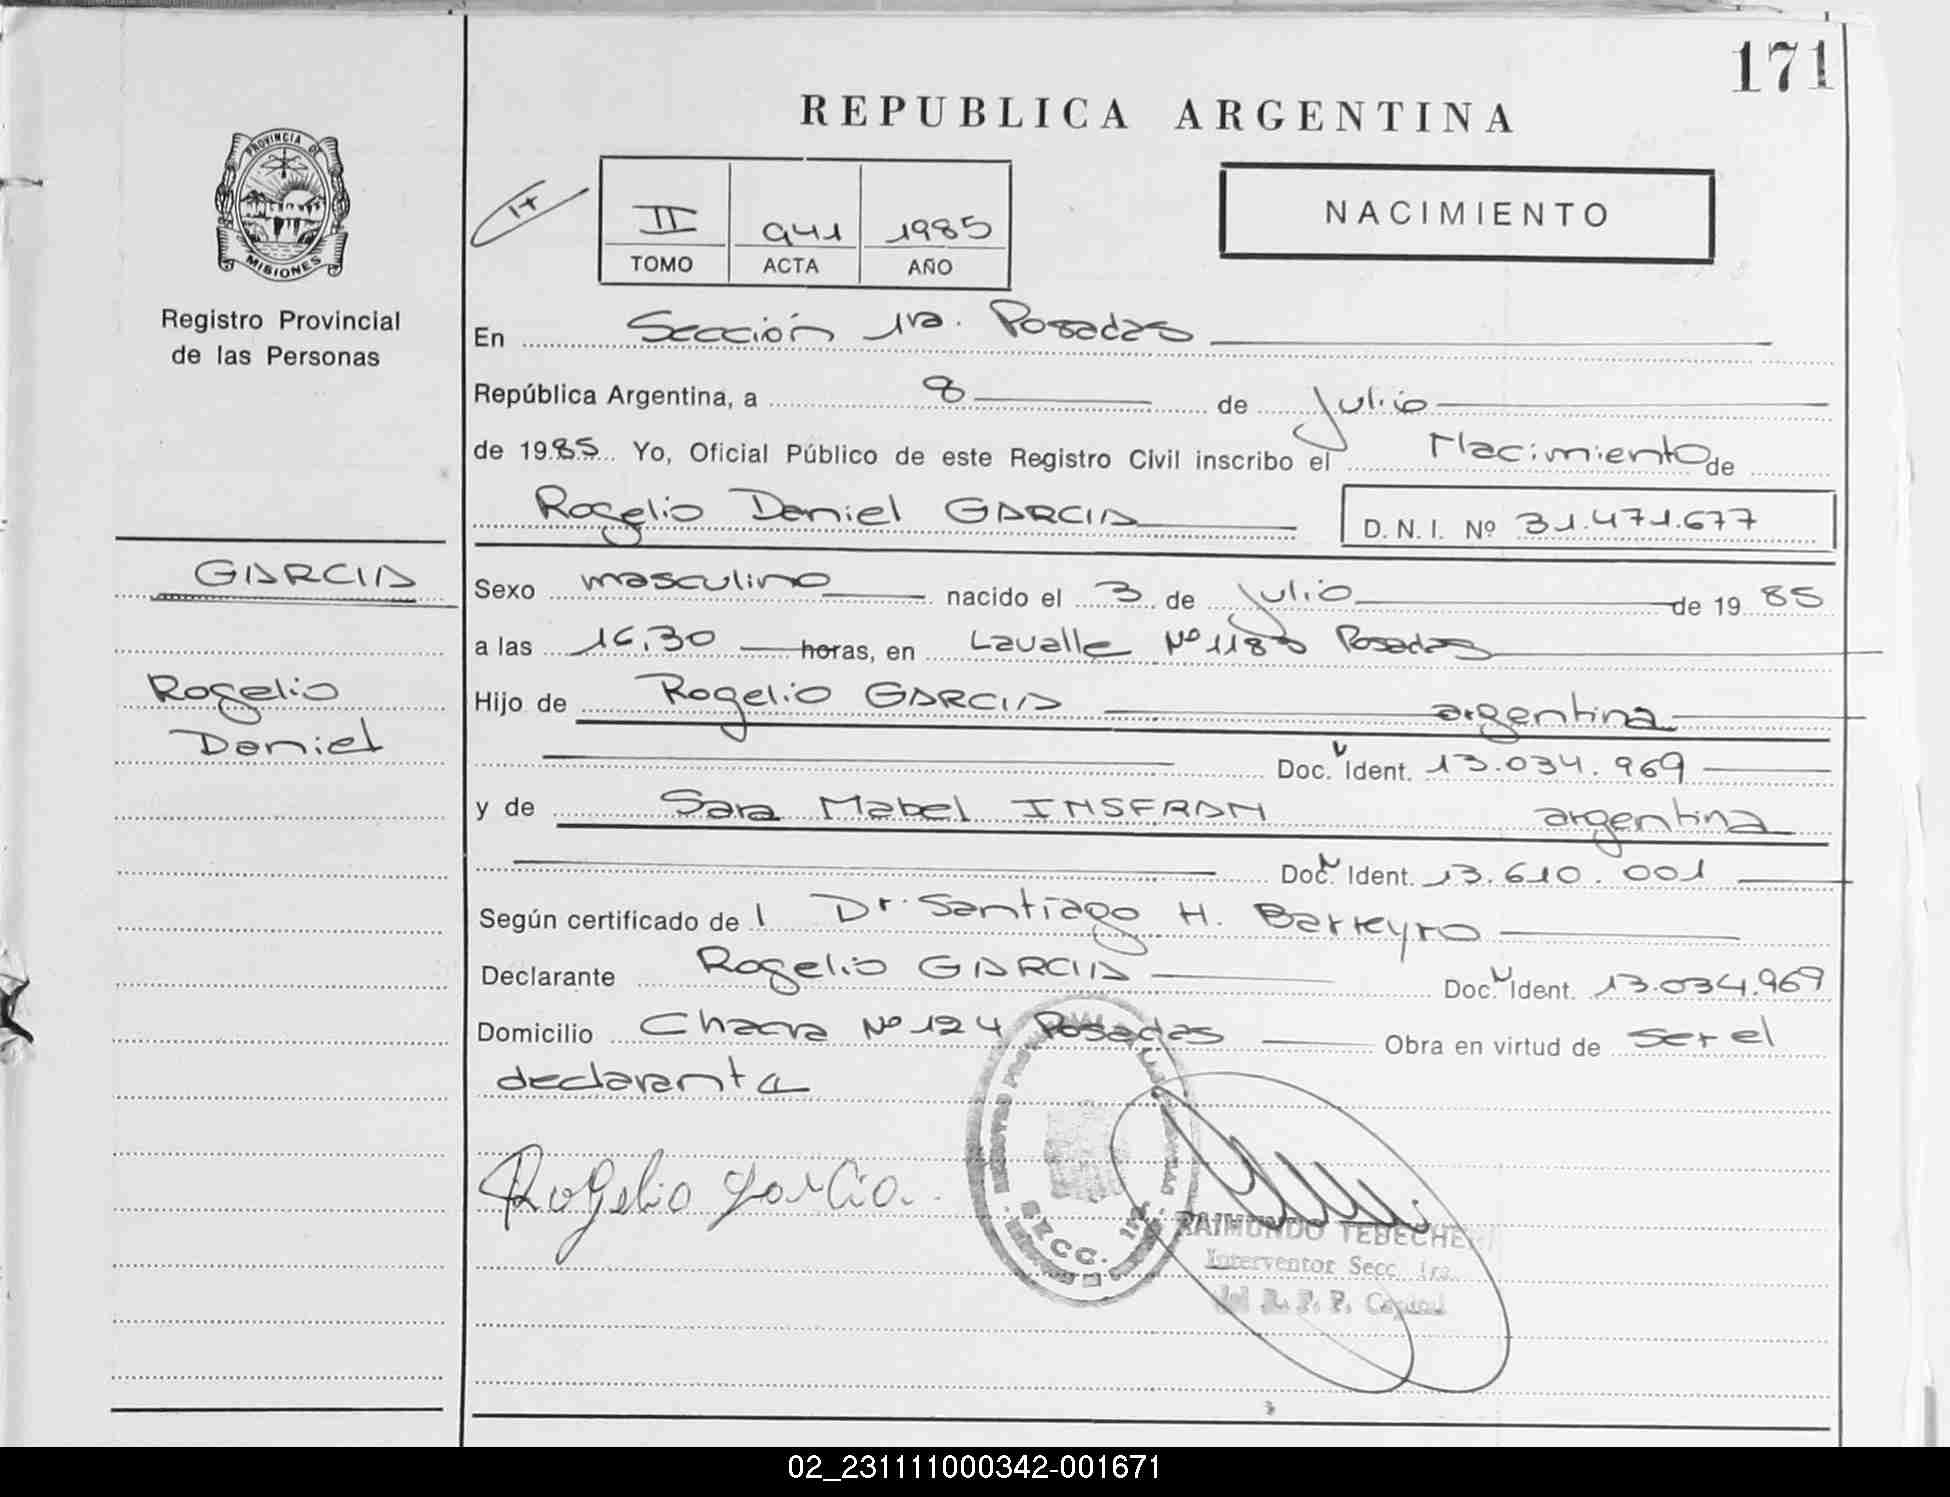 171
REPUBLICA ARGENTINA
PROVINCIA DE
MISIONES
Registro Provincial
de las Personas
II 941 1985
TOMO ACTA AÑO
NACIMIENTO
En Sección 1ra. Posadas
República Argentina, a 8 de Julio
de 1985 Yo, Oficial Público de este Registro Civil inscribo el Nacimiento de
Rogelio Daniel GARCIA D. N. I. Nº 31.471.677
GARCIA
Rogelio
Daniel
Sexo masculino nacido el 3 de Julio de 1985
a las 16,30 horas, en Lavalle Nº 1183 Posadas
Hijo de Rogelio GARCIA argentina
Doc. Ident. 13.034.969
y de Sara Mabel INSFRAN argentina
Doc. Ident. 13.610.001
Según certificado de l Dr. Santiago H. Barreyro
Declarante Rogelio GARCIA Doc. Ident. 13.034.969
Domicilio Chacra Nº 124 Posadas Obra en virtud de ser el
declarante
Rogelio Garcia.
SECC. 1ra.
RAIMUNDO TEBECHERI
Interventor Secc. 1ra.
del R. P. P. Capital
02_231111000342-001671